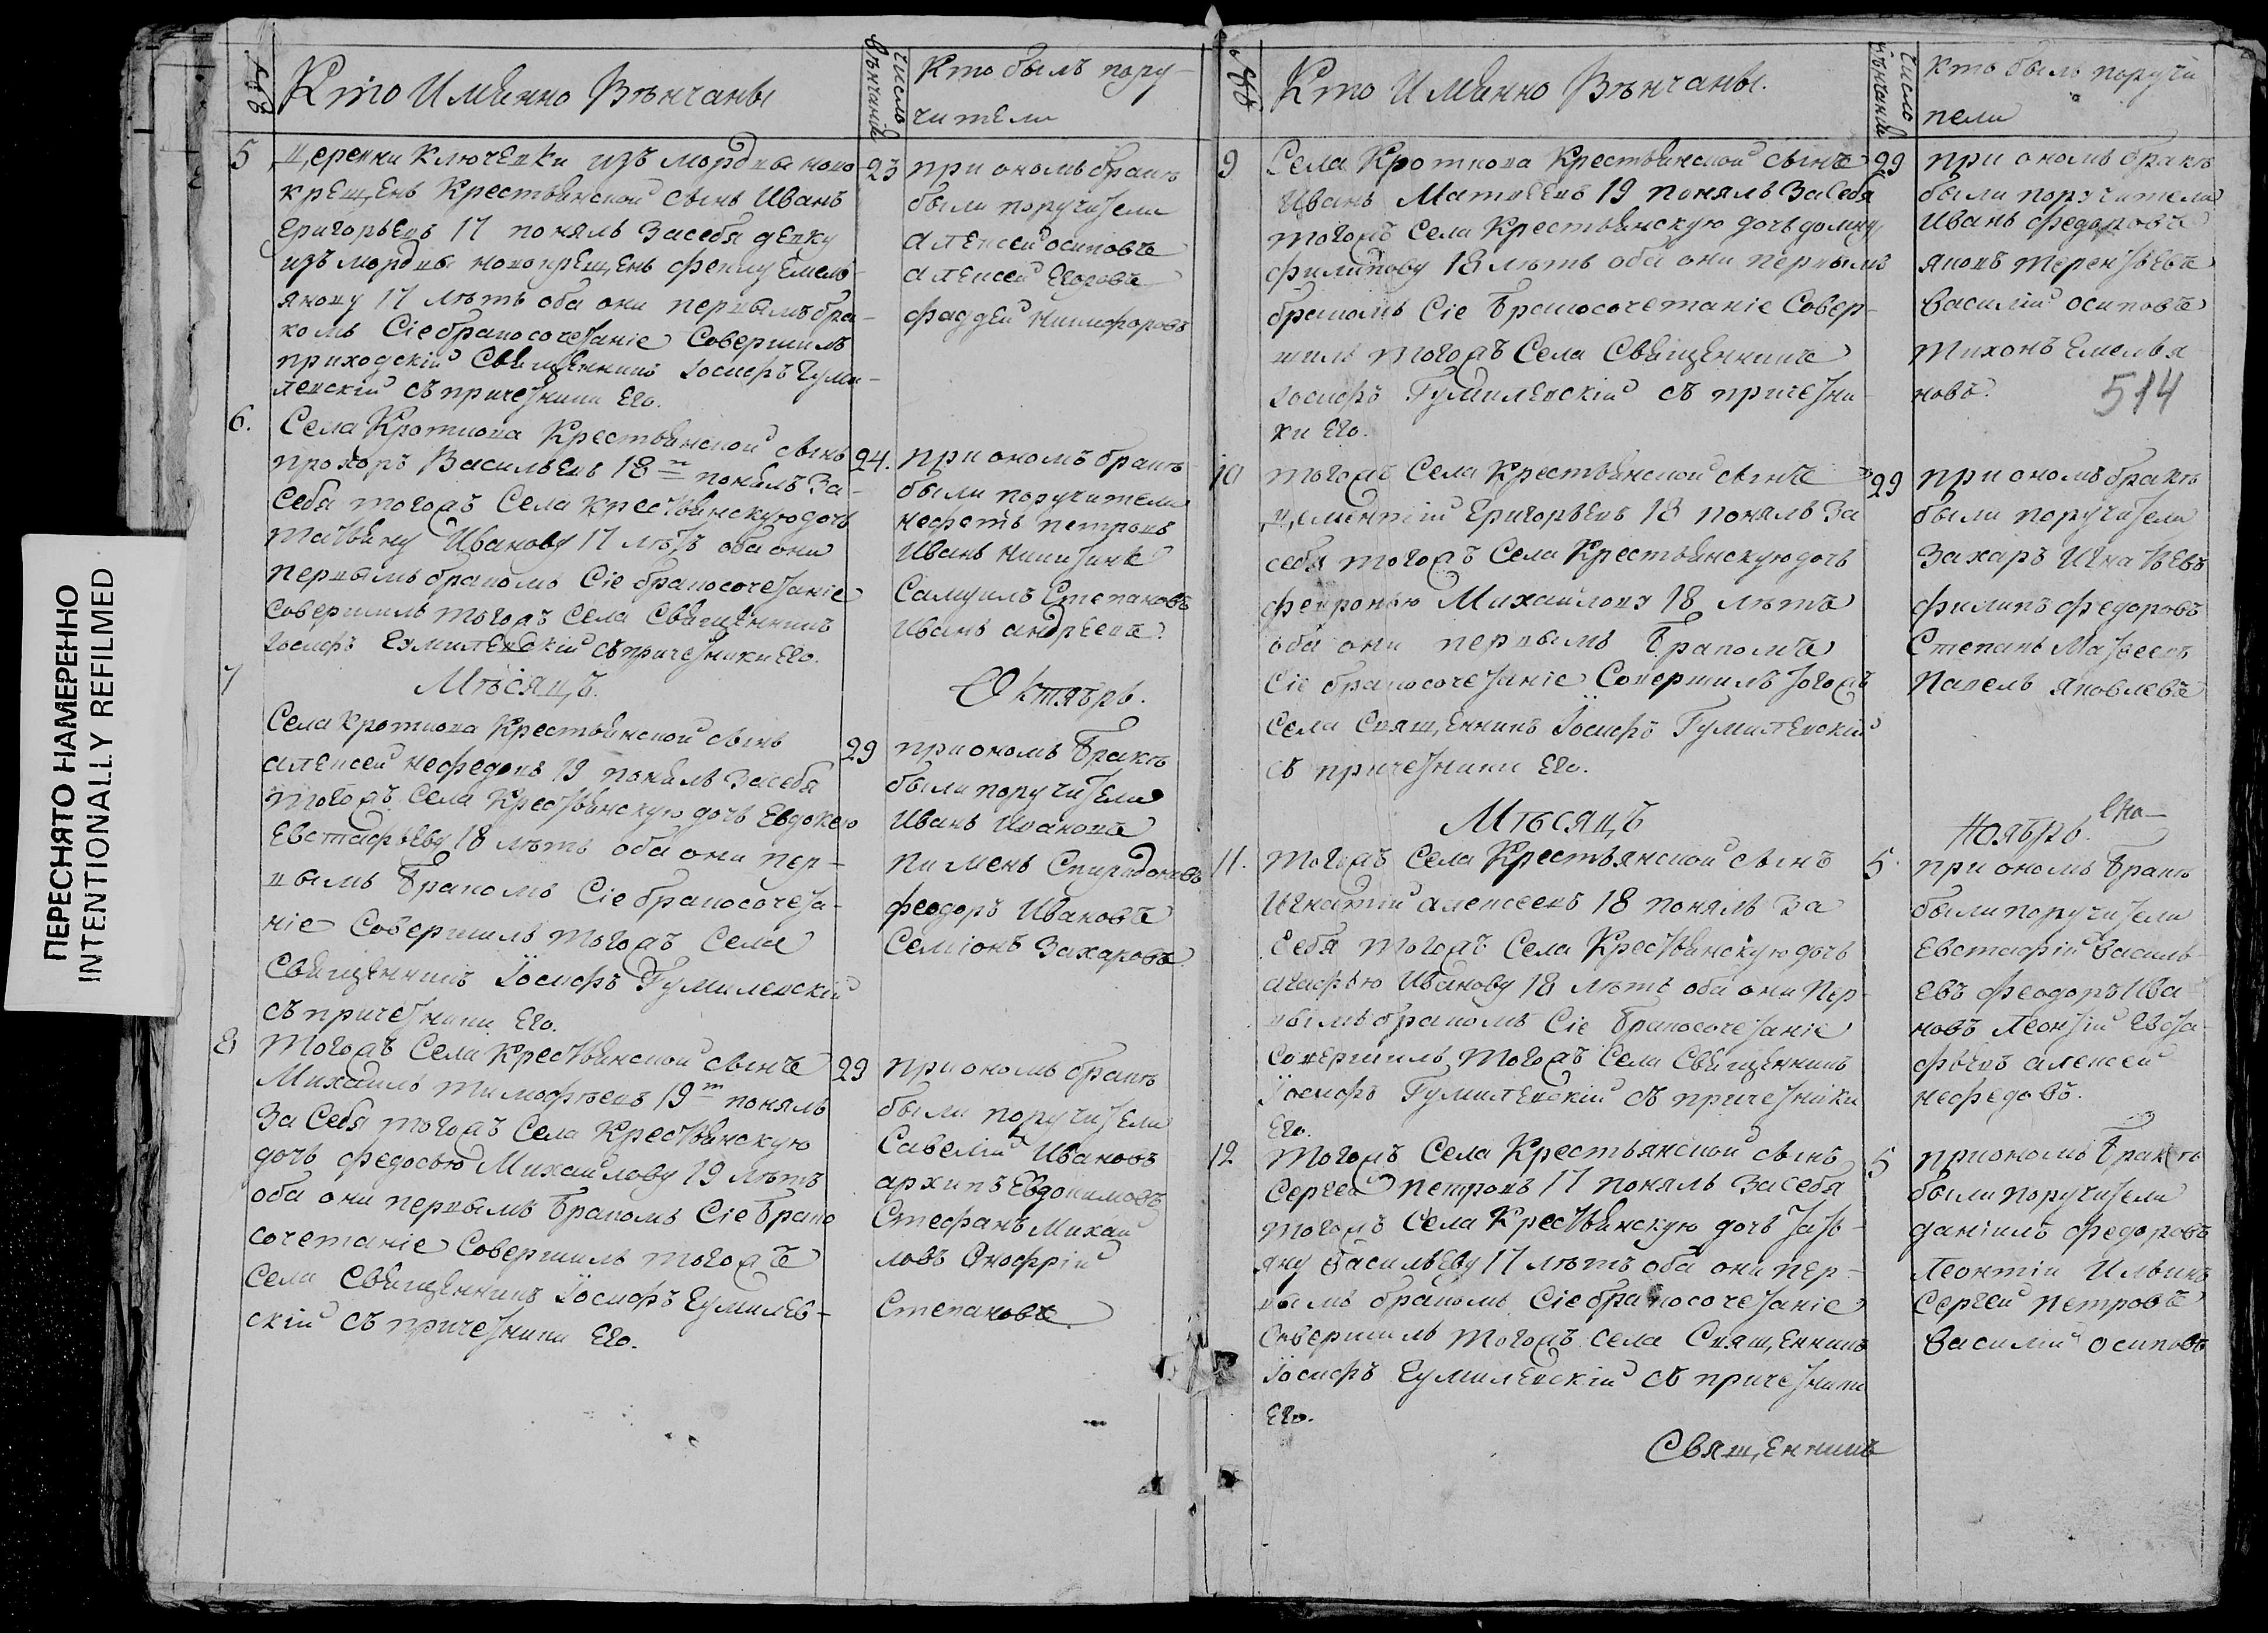 ПЕРЕСНЯТО НАМЕРЕННО
INTENTIONALLY REFILMED
№
Кто Имянно Вѣнчаны
число вѣнчанія
Кто былъ пору-
чители
5
Деревни Ключевки изъ мордвы ново
крещенъ Крестьянской сынъ Иванъ
Григорьевъ 17 понялъ За себя девку
изъ мордвы новокрещенъ феклу Емель-
янову 17 лѣтъ оба они первымъ бра-
комъ Сіе бракосочетаніе Совершилъ
приходскій Священникъ Іосифъ Гуми-
левскій съ причетники Его.
23
при ономъ бракѣ
были поручители
Алексей осиповъ
Алексей Егоровъ
Фаддей Никифоровъ
6.
Села Кроткова Крестьянской сынъ
прохоръ Васильевъ 18 т понялъ За-
Себя тогожъ Села крестьянскую дочь
татьяну Иванову 17 лѣтъ оба они
первымъ бракомъ Сіе бракосочетаніе
Совершилъ тогожъ Села Священникъ
Іосифъ Гумилевскій съ причетники Его.
24.
при ономъ бракѣ
были поручители
нефетъ петровъ
Иванъ никитинъ
Самуилъ Степановъ
Иванъ андреевъ.
Мѣсяцъ.
Октябрь.
7
Села кроткова Крестьянской сынъ
алексей нефедовъ 19 понялъ За себя
тогожъ Села Крестьянскую дочь Евдокею
Евстафьеву 18 лѣтъ оба они пер-
вымъ бракомъ Сіе бракосочета-
ніе Совершилъ тогожъ Села
Священникъ Іосифъ Гумилевскій
съ причетники Его.
29
при ономъ бракѣ
были поручители
Иванъ Ивановъ
Пименъ Спиридоновъ
феодоръ Ивановъ
Семіонъ Захаровъ
8
Тогожъ Села Крестьянской сынъ
Михаилъ тимофеевъ 19 т понялъ
За Себя тогожъ Села Крестьянскую
дочь федосью Михаилову 19 лѣтъ
оба они первымъ бракомъ Сіе брако
сочетаніе Совершилъ тогожъ
Села Священникъ Іосифъ Гумилев-
скій съ причетники Его.
29
при ономъ бракѣ
были поручители
Савелій Ивановъ
архипъ Евдокимовъ
Стефанъ Михаи
ловъ Онофрій
Степановъ
№
Кто Имянно Вѣнчаны.
число вѣнчанія
Кто былъ поручи
тели
9
Села Кроткова Крестьянской сынъ
Иванъ Матвеевъ 19 понялъ За Себя
тогожъ Села Крестьянскую дочь домну
филипову 18 лѣтъ оба они первымъ
бракомъ Сіе бракосочетаніе Совер-
шилъ тогожъ Села Священникъ
Іосифъ Гумилевскій съ причетни
ки Его.
29
при ономъ бракѣ
были поручители
Иванъ федоровъ
яковъ терентьевъ
Василій осиповъ
тихонъ Емелья
новъ.
514
10
тогожъ Села Крестьянской сынъ
Дементій Григорьевъ 18 понялъ За
себя тогожъ Села Крестьянскую дочь
февронью Михаилову 18 лѣтъ
оба они первымъ бракомъ
Сіе бракосочетаніе Совершилъ тогожъ
Села Священникъ Іосифъ Гумилевскій
съ причетники Его.
29
при ономъ бракѣ
были поручители
Захаръ Игнатьевъ
филипъ федоровъ
Степанъ Матвеевъ
Павелъ яковлевъ
Мѣсяцъ
Ноябрь.
11.
тогожъ Села Крестьянской сынъ
Игнатій алексеевъ 18 понялъ За
Себя тогожъ Села Крестьянскую дочь
агафью Иванову 18 лѣтъ оба они Пер-
вымъ бракомъ Сіе бракосочетаніе
Совершилъ тогожъ Села Священникъ
Іосифъ Гумилевскій съ причетники
Его.
5.
при ономъ бракѣ
были поручители
Евстафій Василь-
евъ феодоръ Ива
новъ Леонтій Евста-
фьевъ алексей
нефедовъ.
12
Тогожъ Села Крестьянской сынъ
Сергей петровъ 17 понялъ За себя
тогожъ Села Крестьянскую дочь тать-
яну Васильеву 17 лѣтъ оба они пер-
вымъ бракомъ Сіе бракосочетаніе
Совершилъ тогожъ села Священникъ
Іосифъ Гумилевскій съ причетники
Его.
5
при ономъ бракѣ
были поручители
даніилъ федоровъ
Леонтій Ильинъ
Сергей петровъ
Василій осиповъ
Священникъ